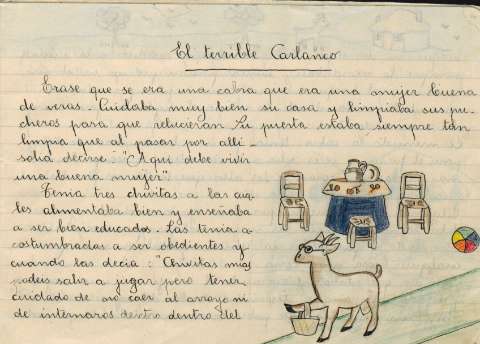 El terrible Carlanco
Erase que se era una cabra que era una mujer buena
de veras. Cuidaba muy bien su casa y limpiaba sus pu-
cheros para que relucieran. Su puerta estaba siempre tan
limpia que al pasar por alli
solia decirse: "Aqui debe vivir
una buena mujer"
Tenia tres chivitas a las cua-
les alimentaba bien y enseñaba
a ser bien educadas. Las tenia a-
costumbradas a ser obedientes y
cuando las decia: "Chivitas mias
podeis salir a jugar pero tener
cuidado de no caer al arroyo ni
de internaros dentro dentro del